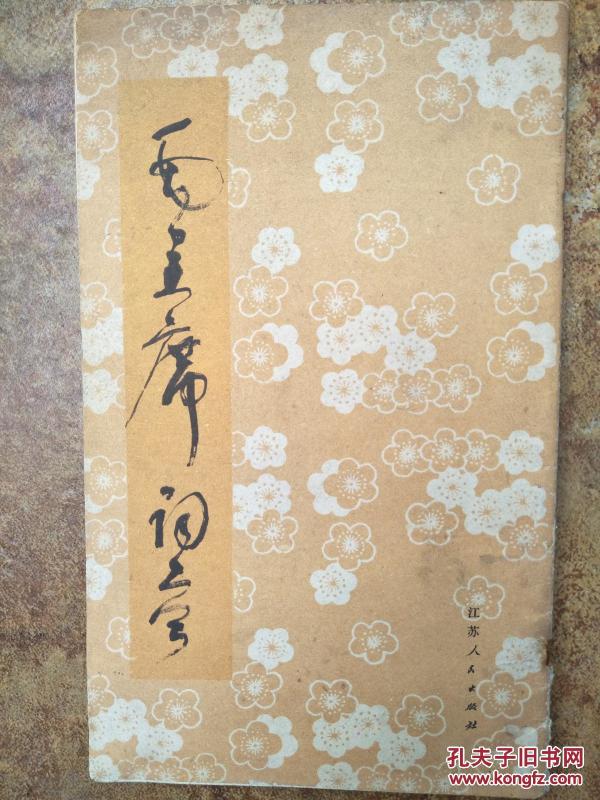 毛主席词二首
江苏人民出版社
孔夫子旧书网
www.kongfz.com